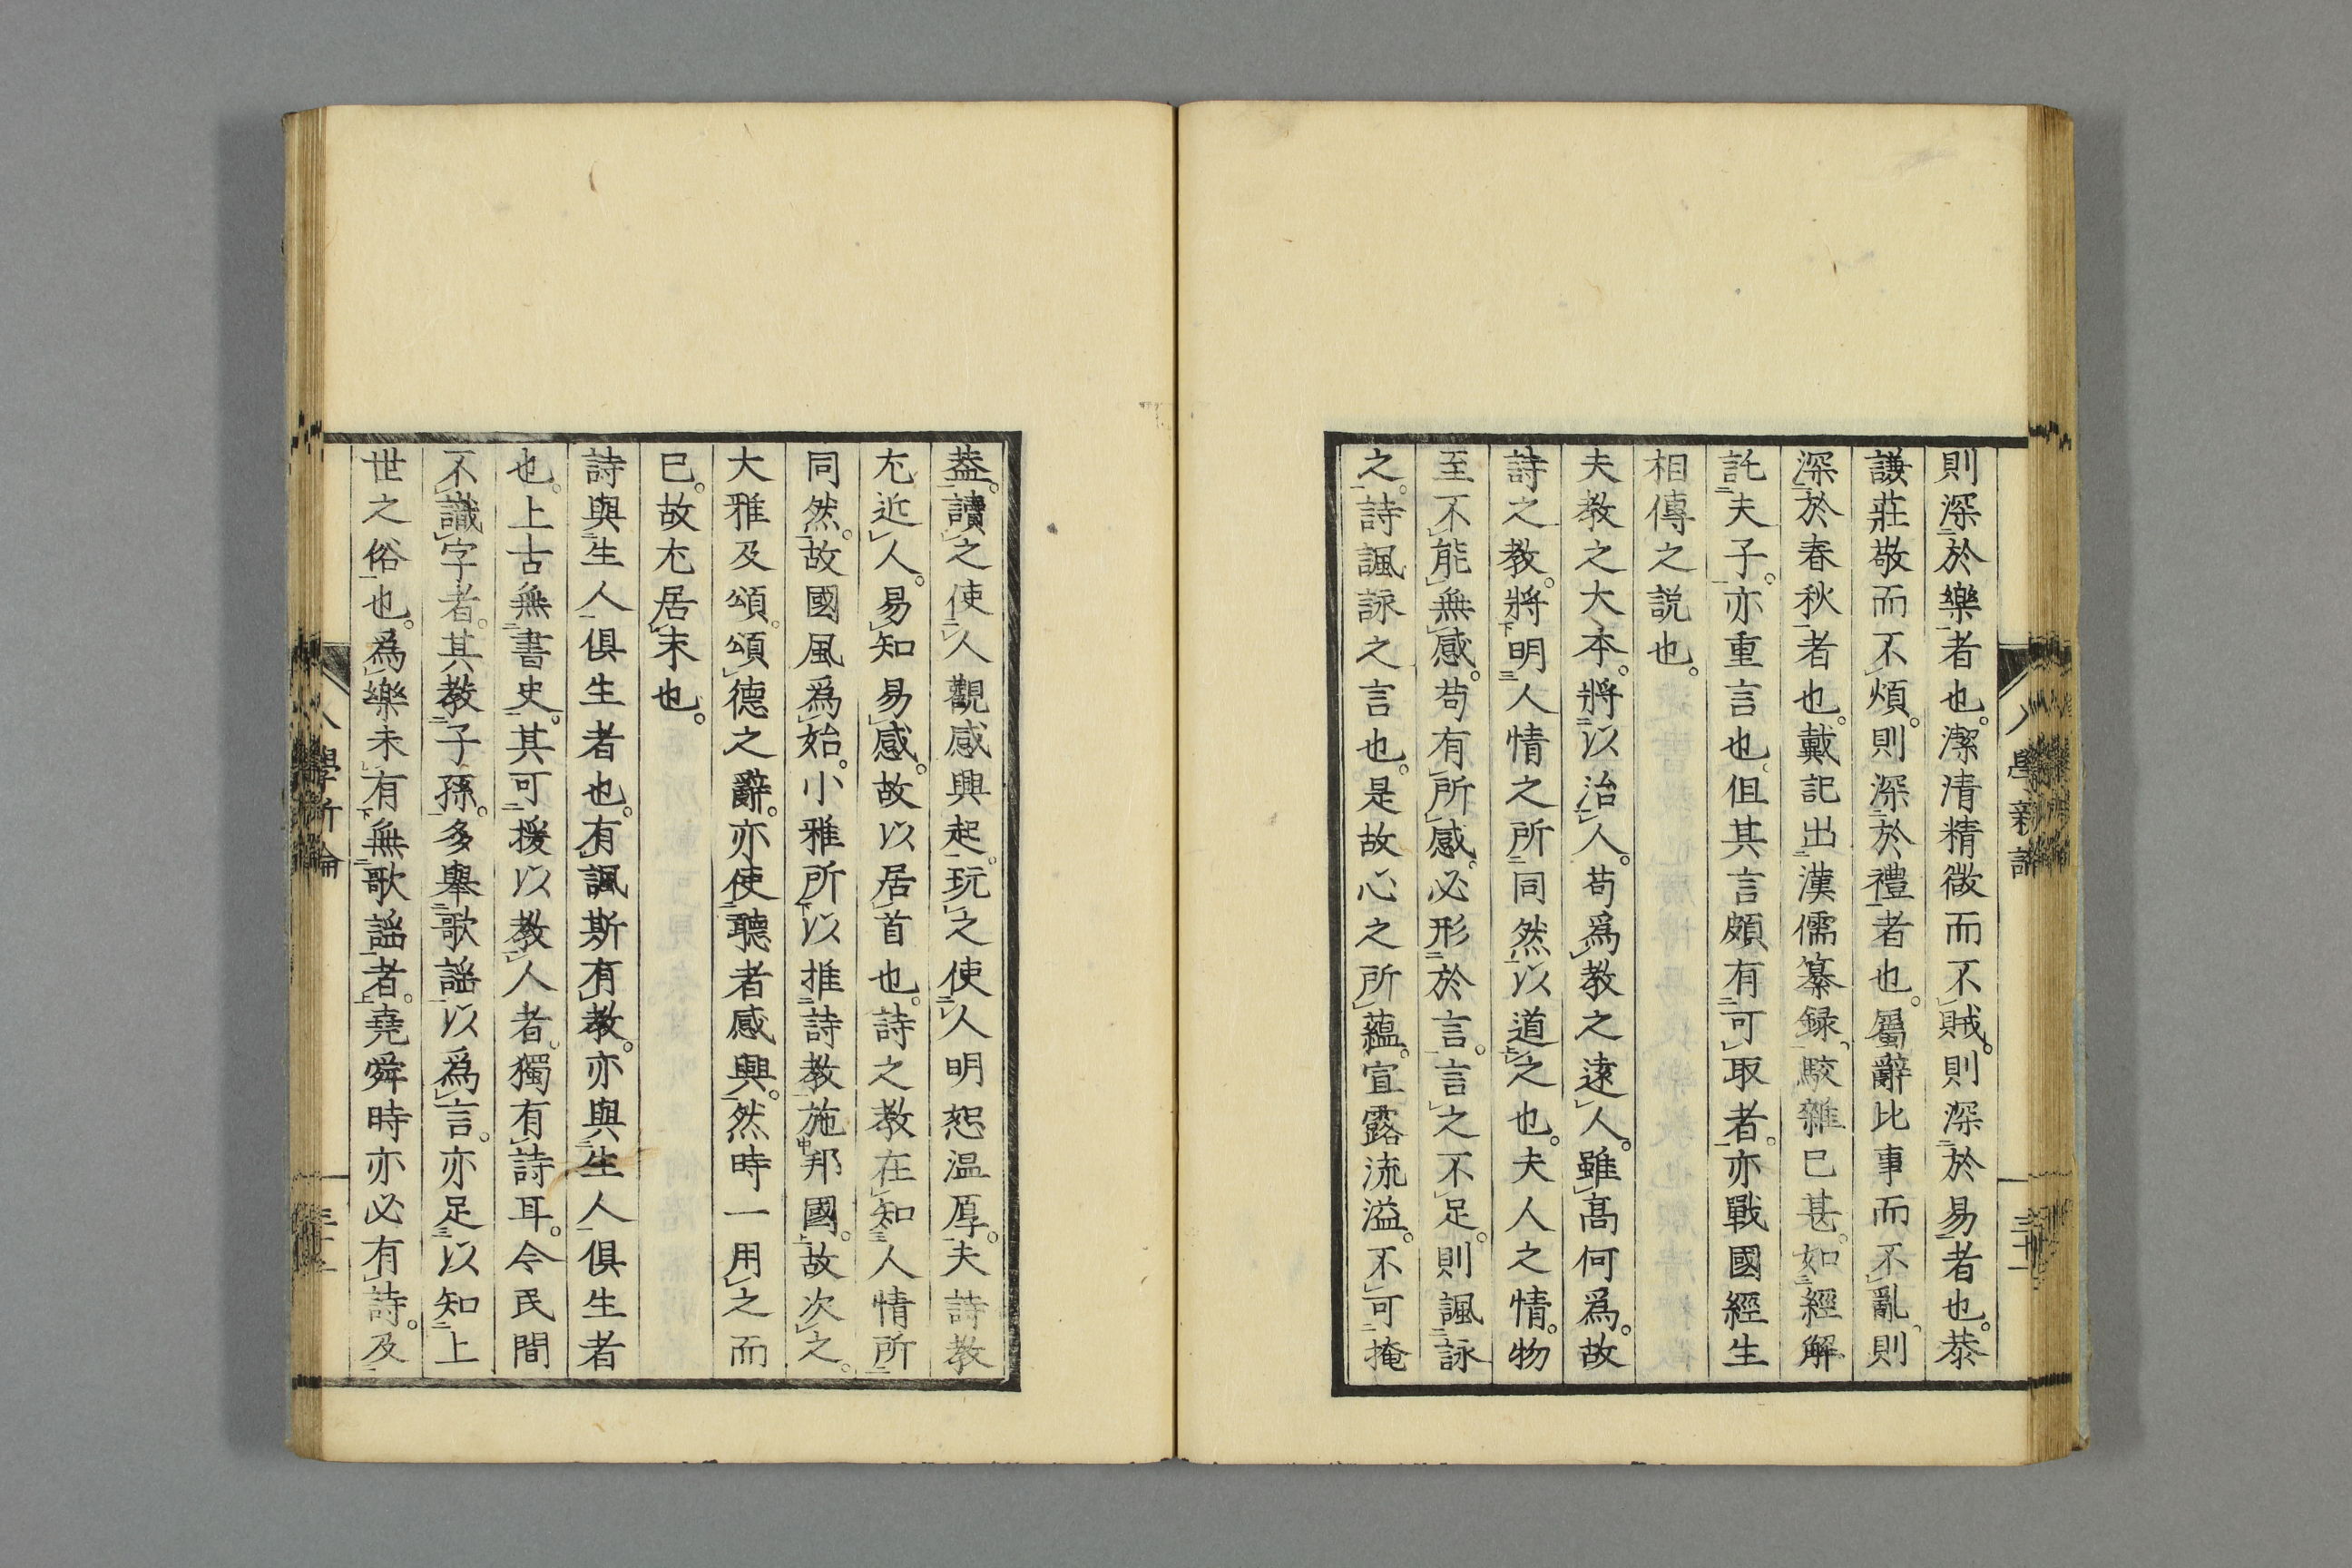 則深於樂者也。潔清精微而不賊。則深於易者也。恭
謙莊敬而不煩。則深於禮者也。屬辭比事而不亂。則
深於春秋者也。戴記出漢儒纂録。駁雜已甚。如經解
託夫子。亦重言也。但其言頗有可取者。亦戰國經生
相傳之説也。
夫教之大本。將以治人。苟爲教之遠人。雖高何爲。故
詩之教。將明人情之所同然以道之也。夫人之情。物
至不能無感。苟有所感。必形於言。言之不足。則諷詠
之。詩諷詠之言也。是故心之所蘊。宣露流溢。不可掩
蓋。讀之使人觀感興起。玩之使人明恕温厚。夫詩教
尤近人。易知易感。故以居首也。詩之教在知人情所
同然。故國風爲始。小雅所以推詩教施邦國。故次之。
大雅及頌。頌德之辭。亦使聽者感興。然時一用之而
已。故尤居末也。
詩與生人俱生者也。有諷斯有教。亦與生人俱生者
也。上古無書史。其可援以教人者。獨有詩耳。今民間
不識字者。其教子孫。多舉歌謡以爲言。亦足以知上
世之俗也。爲樂未有無歌謡者。堯舜時亦必有詩。及